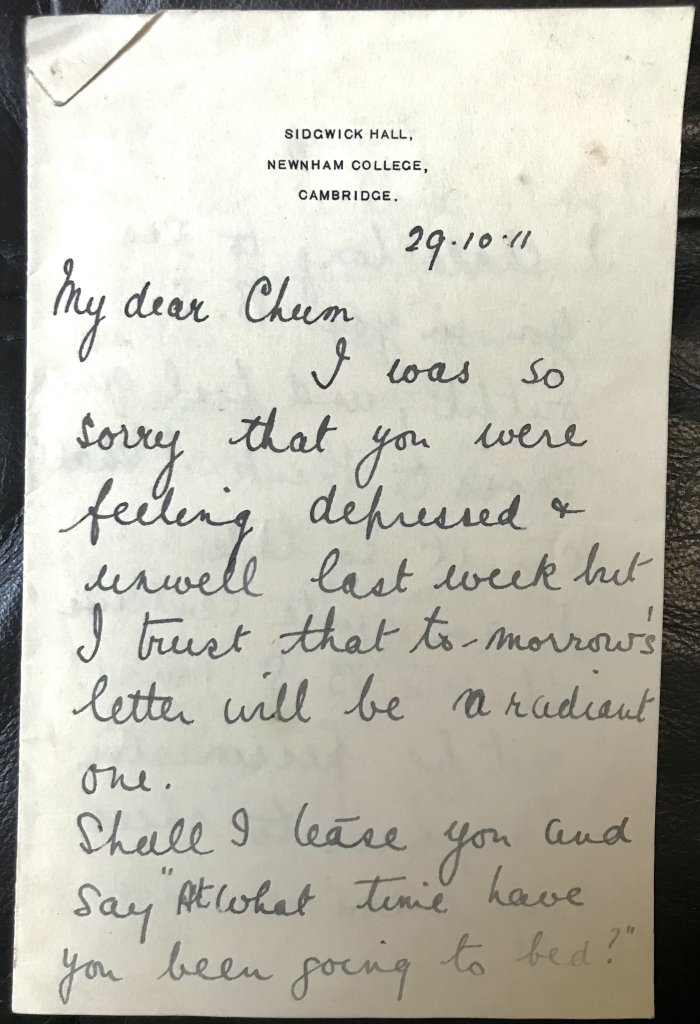 SIDGWICK HALL,
NEWNHAM COLLEGE,
CAMBRIDGE.
29.10.11
My dear Chum
I was so
sorry that you were
feeling depressed &
unwell last week but
I trust that to-morrow's
letter will be a radiant
one.
Shall I tease you and
say "At what time have
you been going to bed?"